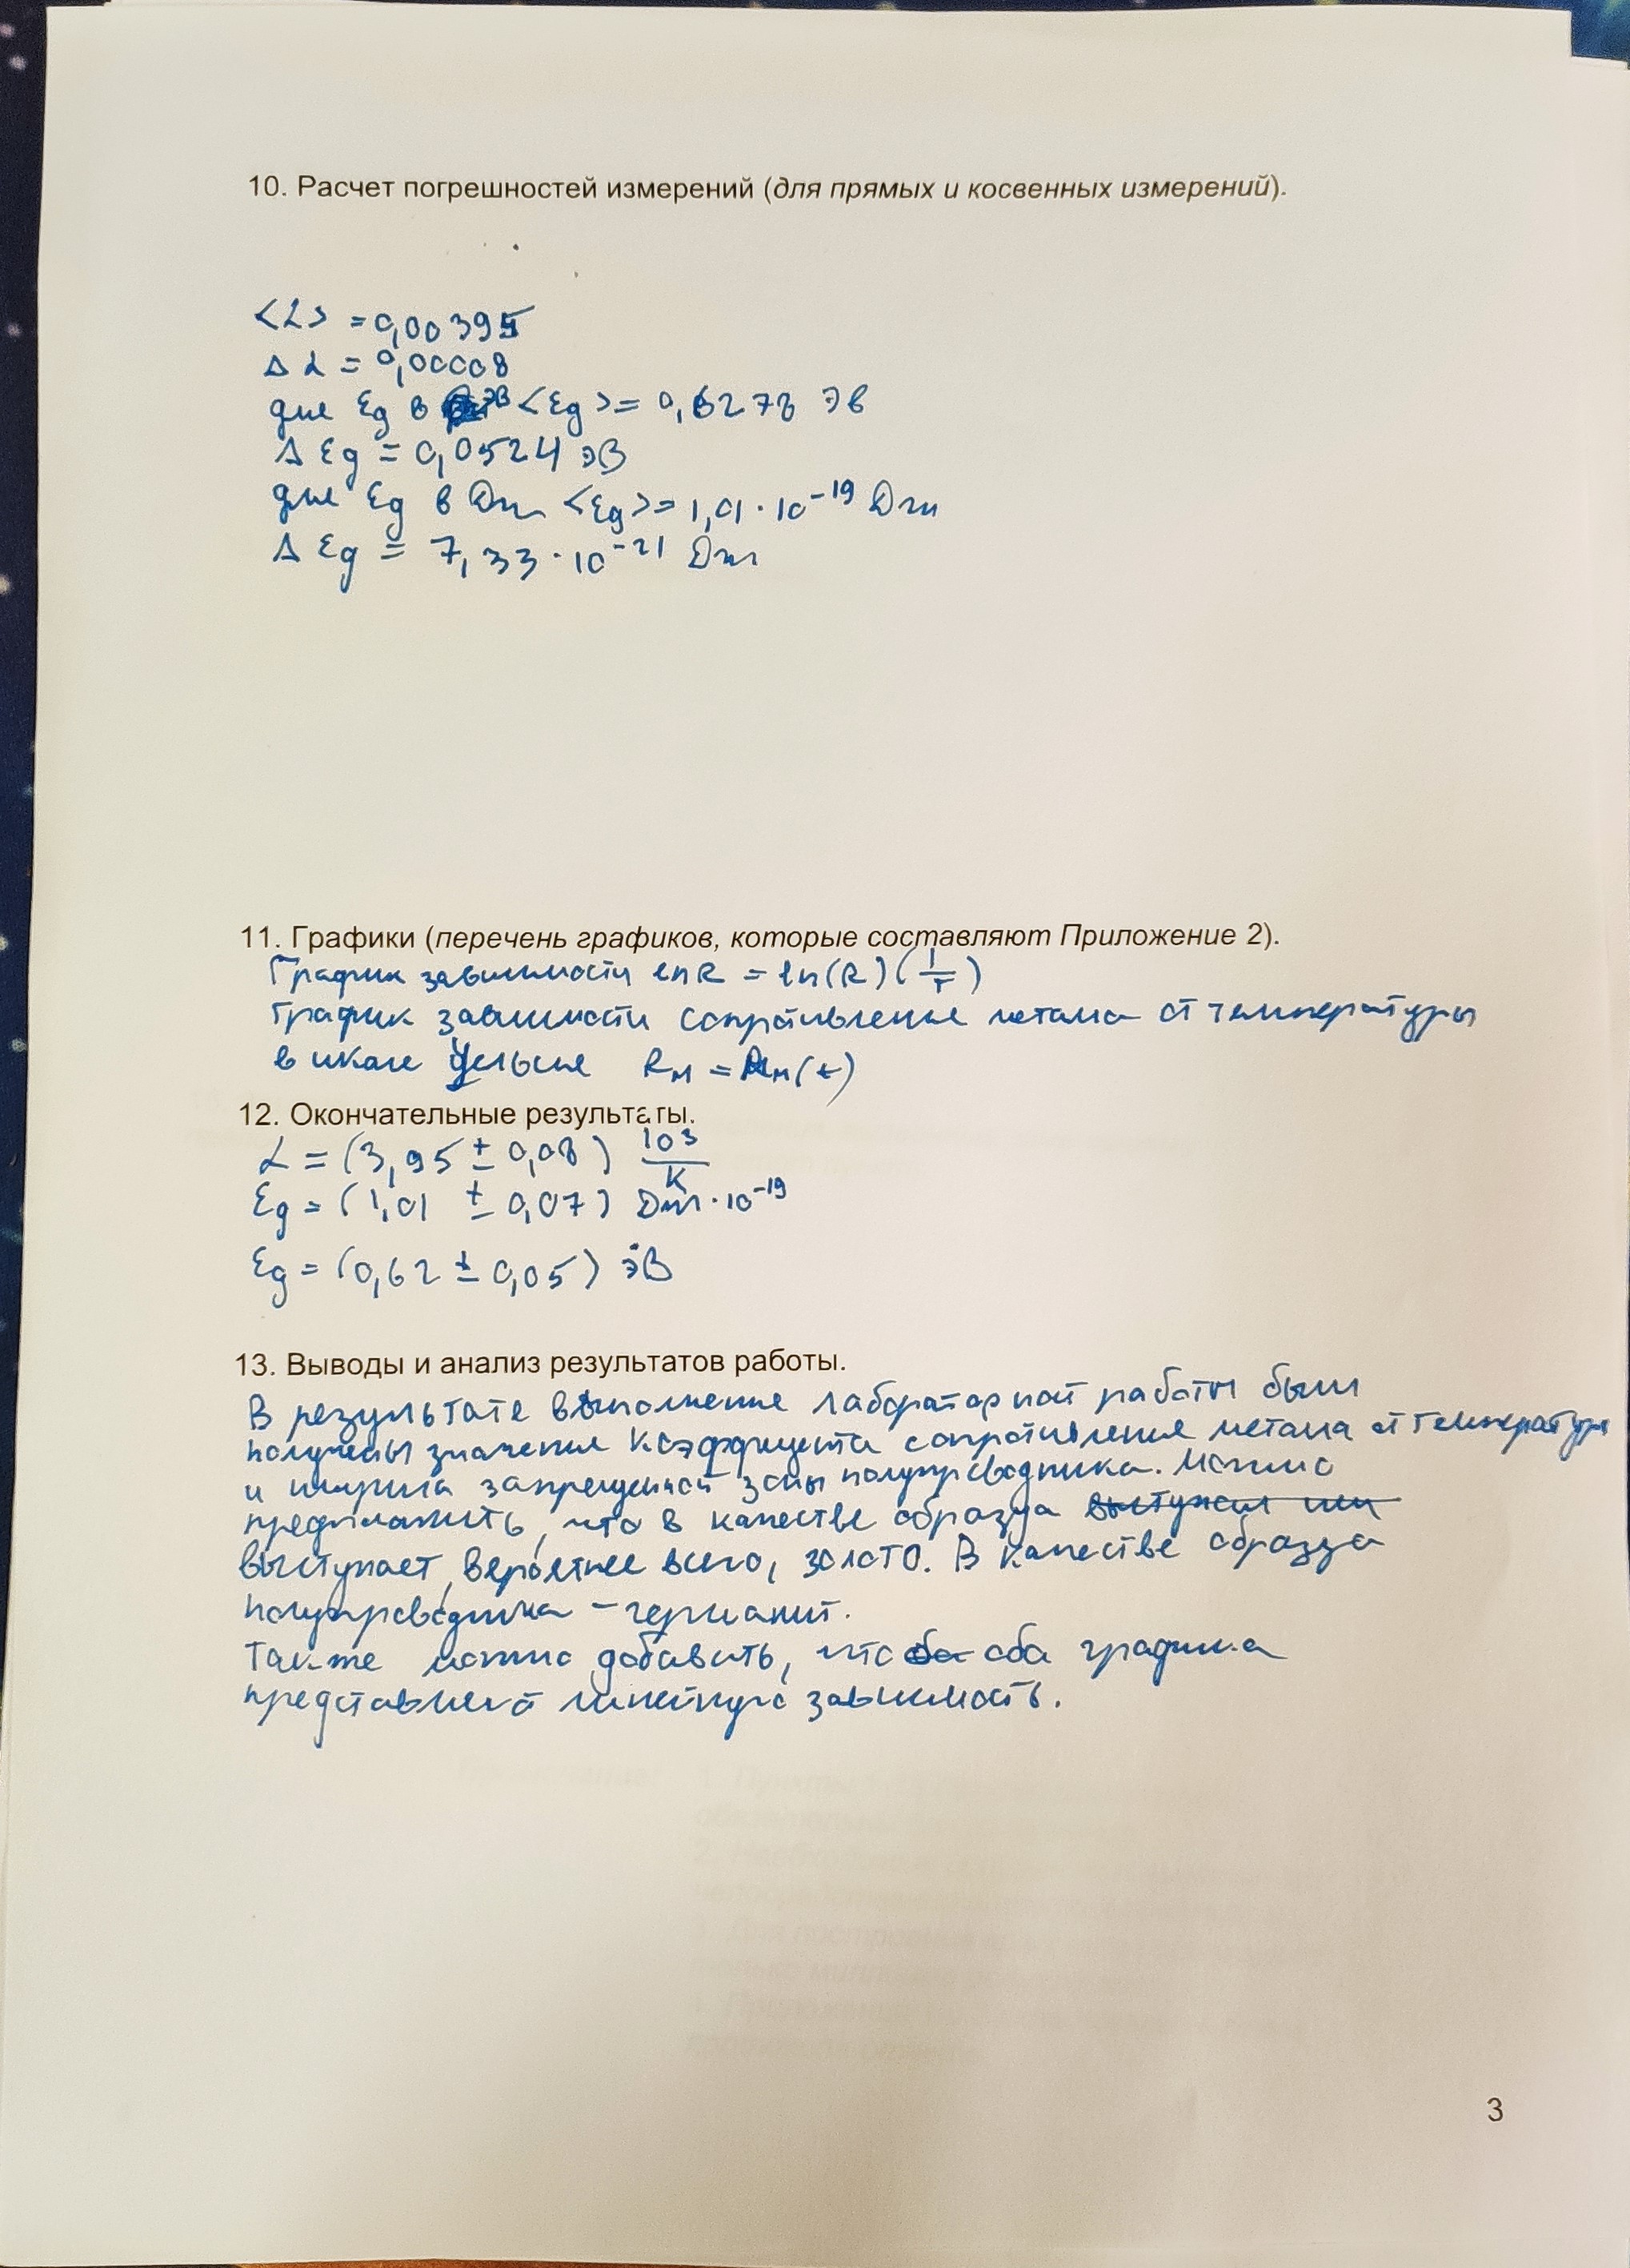 10. Расчет погрешностей измерений (для прямых и косвенных измерений).
<α> = 0,00395
Δα = 0,00008
для Eg в эВ <Eg> = 0,6278 эВ
ΔEg = 0,0524 эВ
для Eg в Дж <Eg> = 1,01·10⁻¹⁹ Дж
ΔEg = 7,33·10⁻²¹ Дж
11. Графики (перечень графиков, которые составляют Приложение 2).
График зависимости lnR = ln(R)(1/T)
График зависимости сопротивления метала от температуры
в шкале Цельсия Rм = Rм(t)
12. Окончательные результаты.
α = (3,95 ± 0,08) 10³/K
Eg = (1,01 ± 0,07) Дж·10⁻¹⁹
Eg = (0,62 ± 0,05) эВ
13. Выводы и анализ результатов работы.
В результате выполнения лабораторной работы были
получены значения коэффицента сопротивления метала от температуры
и ширина запрещенной зоны полупроводника. Можно
предположить, что в качестве образца
выступает, вероятнее всего, золото. В качестве образца
полупроводника – германит.
Также можно добавить, что оба графика
представляют линейную зависимость.
3